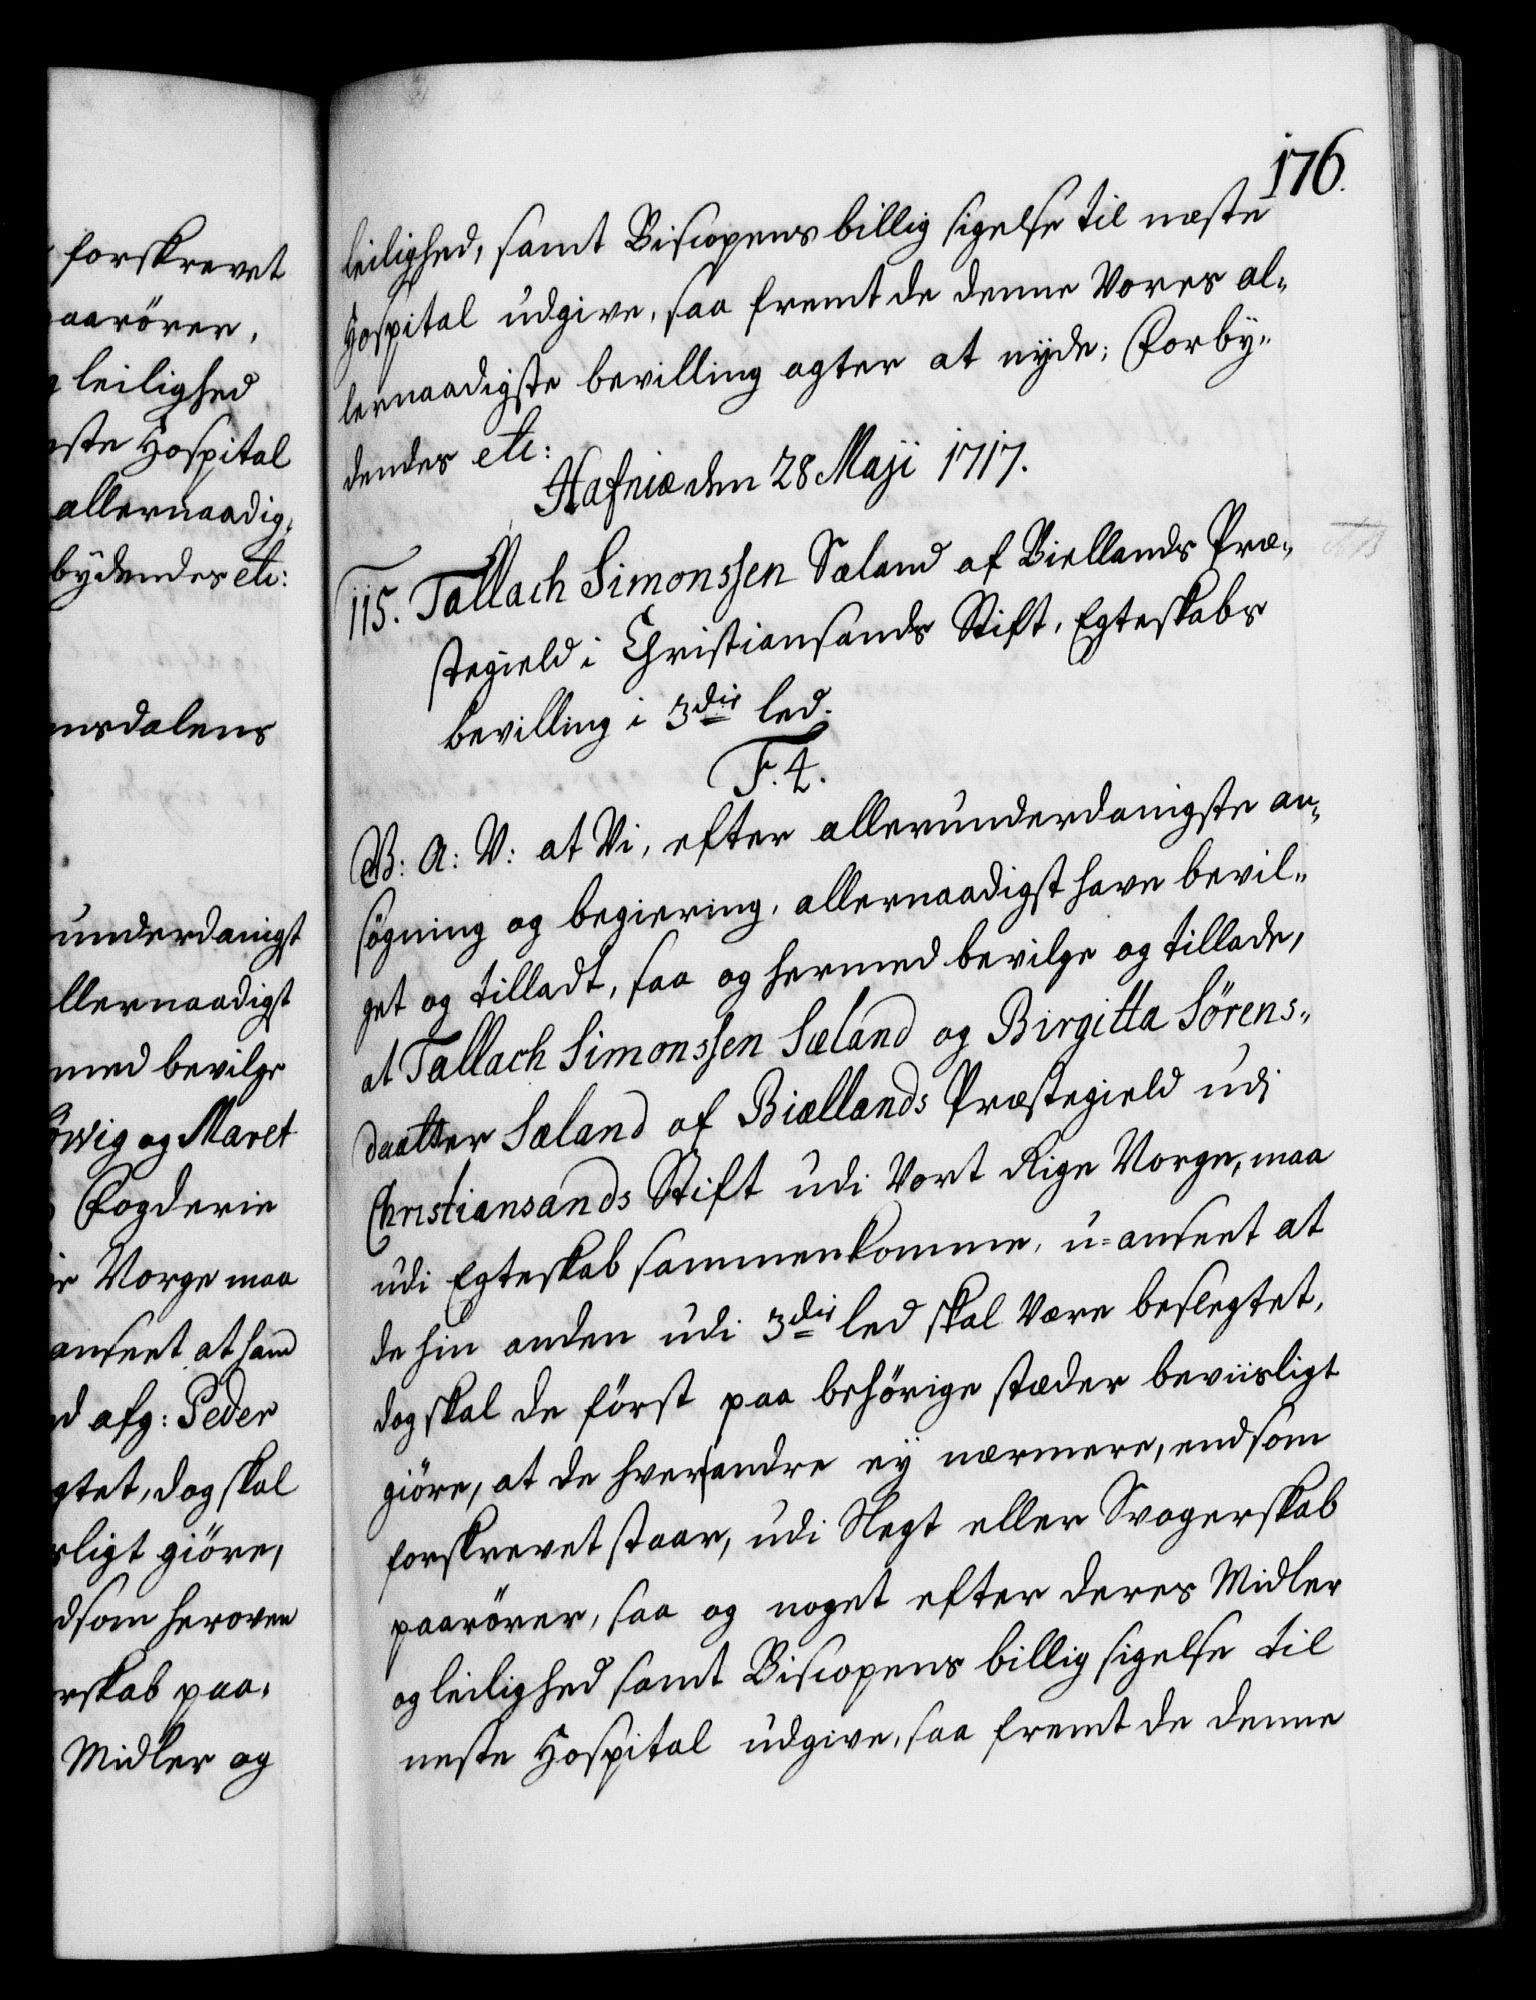 forskrevet
paarörer,
leilighed
ste Hospital
allernaadig,
bydendes etc:
nsdalens
underdanigst
llernaadigst
med bevilge
wig og Maret
Fogderie
Norge maa
anseet at hand
afg: Peder
gtet, dog skal
sligt giöre,
dsom heroven
rskab paa,
Midler og
176.
leilighed, samt Biscopens billig sigelse til næste
Hospital udgive, saa fremt de denne Vores al-
lernaadigste bevilling agter at nyde; Forby-
dendes etc:
Hafniæ den 28 Maji 1717.
115. Tallach Simonssen Sæland af Biellands Præ-
stegield i Christiansands Stift, Egteskabs
bevilling i 3die led.
F. 4.
G: A: V: at Vi, efter allerunderdanigste an-
søgning og begiering, allernaadigst have bevil-
get og tilladt, saa og hermed bevilge og tillade,
at Tallach Simonssen Sæland og Birgitta Sørens-
daatter Sæland af Biællands Præstegield udi
Christiansands Stift udi Vort Rige Norge, maa
udi Egteskab sammenkomme, u-anseet at
de hin anden udi 3die led skal være beslegtet,
dog skal de först paa behörige stæder beviisligt
giöre, at de hverandre ey nærmere, end som
forskrevet staar, udi Slegt eller Svogerskab
paarörer, saa og noget efter deres Midler
og leilighed samt Biscopens billig sigelse til
neste Hospital udgive, saa fremt de denne